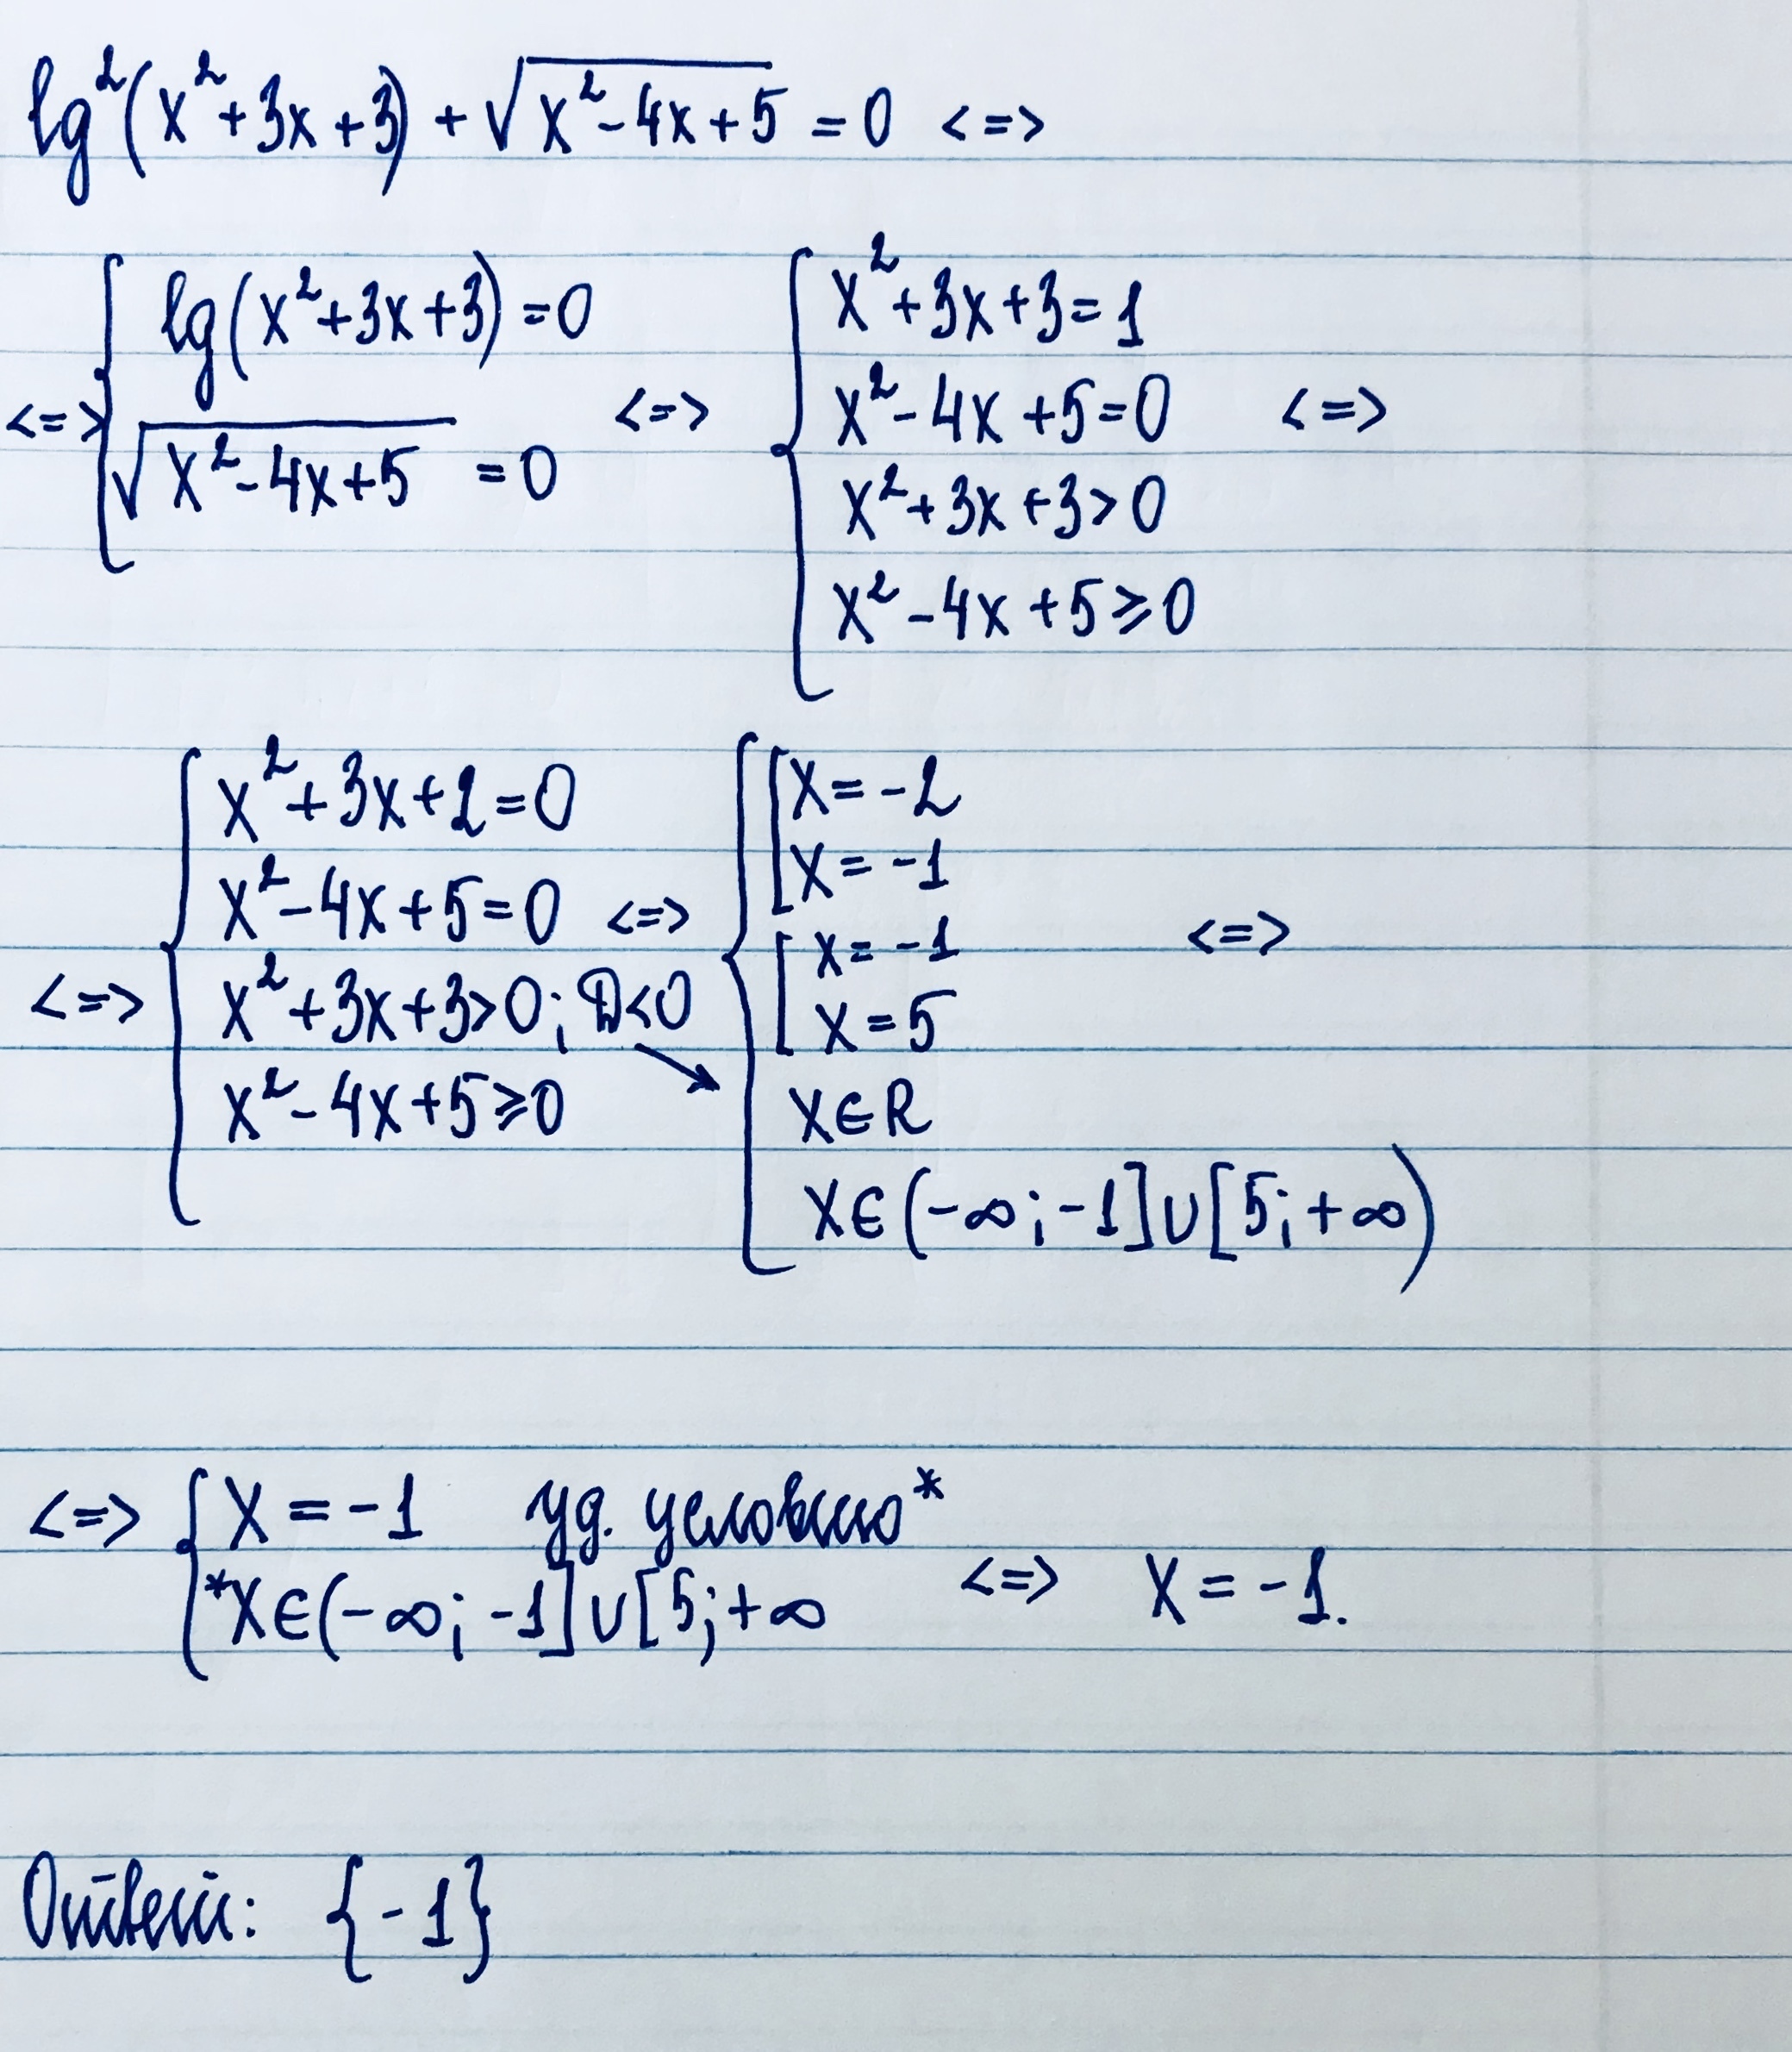 lg²(x²+3x+3) + √(x²-4x+5) = 0 <=>
<=> { lg(x²+3x+3) = 0
√(x²-4x+5) = 0
<=> { x²+3x+3=1
x²-4x+5=0
x²+3x+3>0
x²-4x+5⩾0 <=>
<=> { x²+3x+2=0
x²-4x+5=0
x²+3x+3>0; D<0
x²-4x+5⩾0
<=> { [ x=-2
x=-1
[ x=-1
x=5
x∈R
x∈(-∞;-1]∪[5;+∞) <=>
<=> { x=-1 уд. условию*
*x∈(-∞;-1]∪[5;+∞ <=> x=-1.
Ответ: {-1}